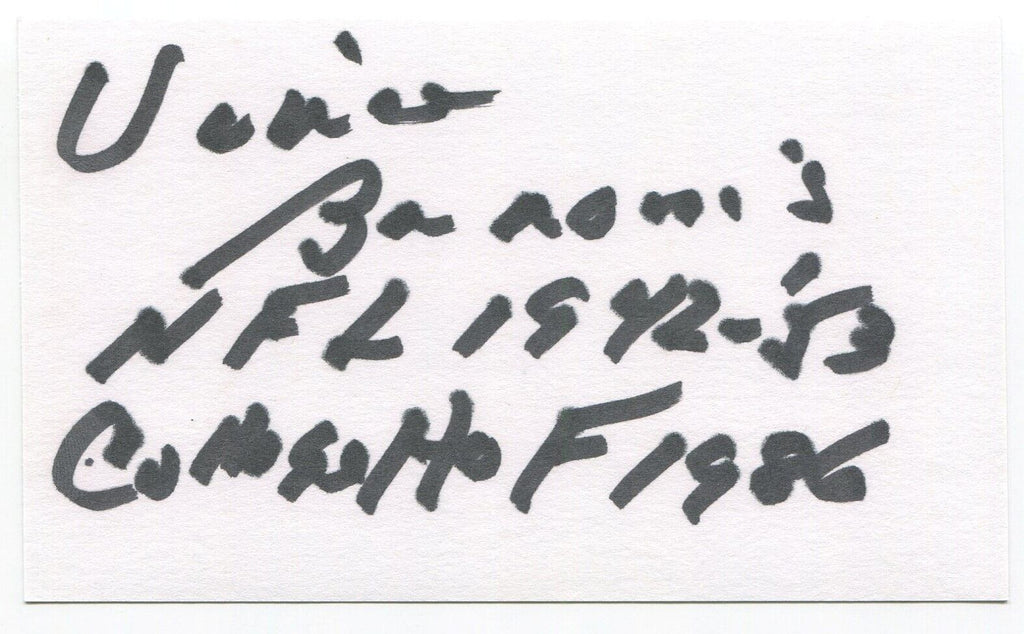 Vince
Banonis
NFL 1942-'53
College HoF 1986